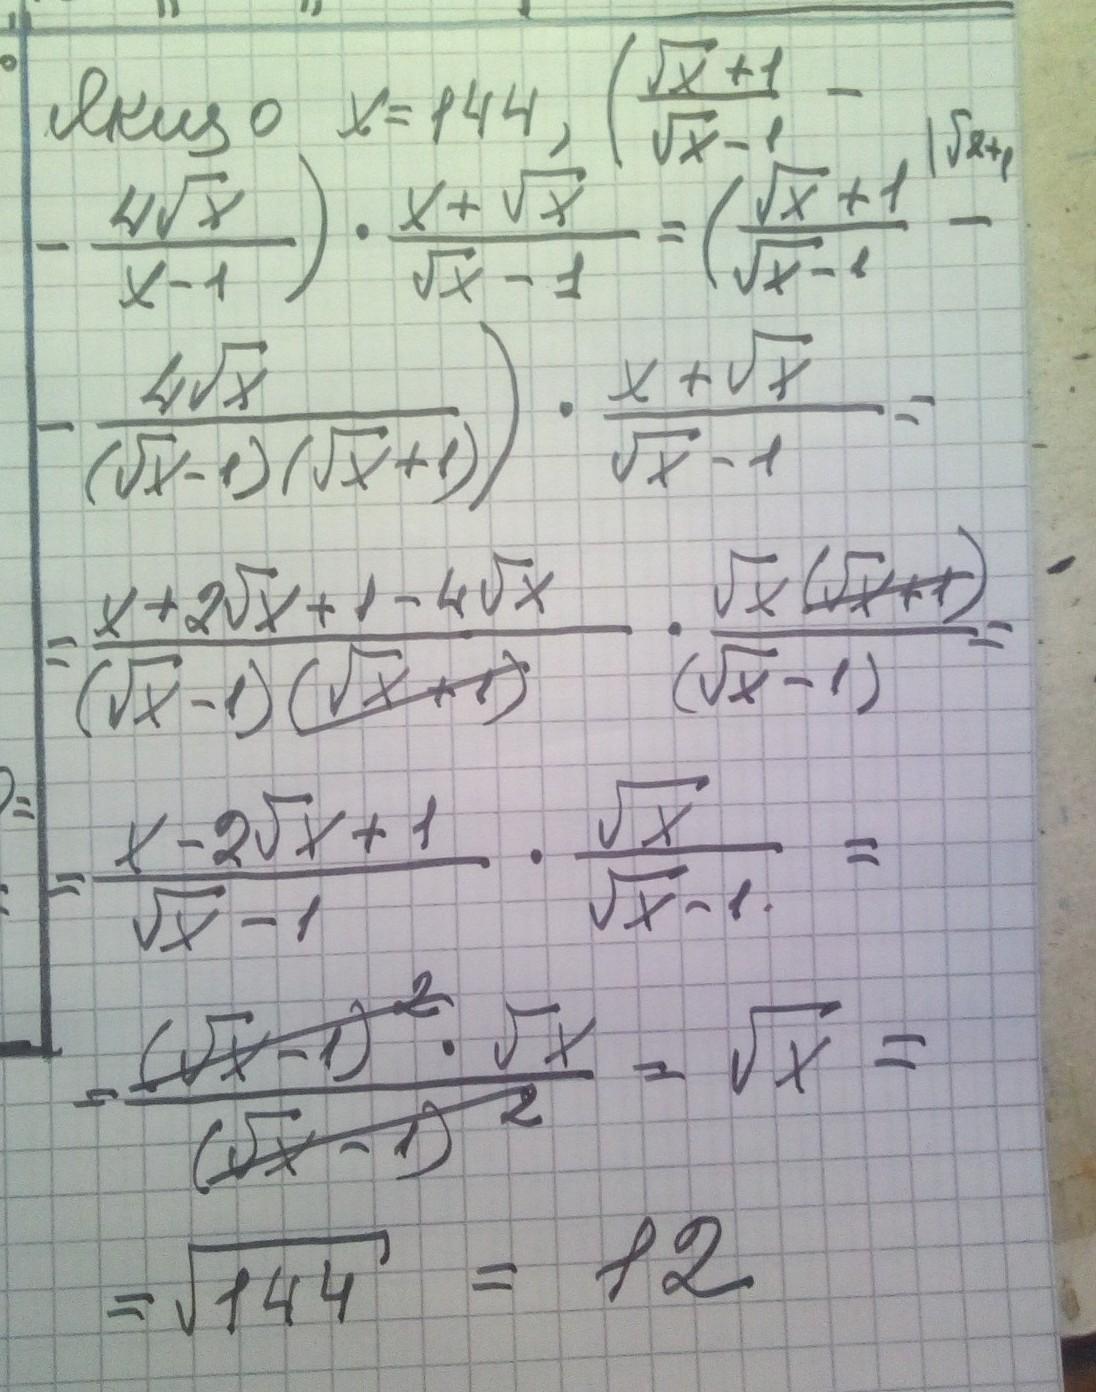 Якщо x = 144, ( (√x + 1)/(√x - 1) -
- 4√x/(x - 1) ) · (x + √x)/(√x - 1) = ( (√x + 1)/(√x - 1) |√x+1 -
- 4√x/((√x - 1)(√x + 1)) ) · (x + √x)/(√x - 1) =
= (x + 2√x + 1 - 4√x)/((√x - 1)(√x + 1)) · √x(√x + 1)/(√x - 1) =
= (x - 2√x + 1)/(√x - 1) · √x/(√x - 1) =
= (√x - 1)² · √x/(√x - 1)² = √x =
= √144 = 12